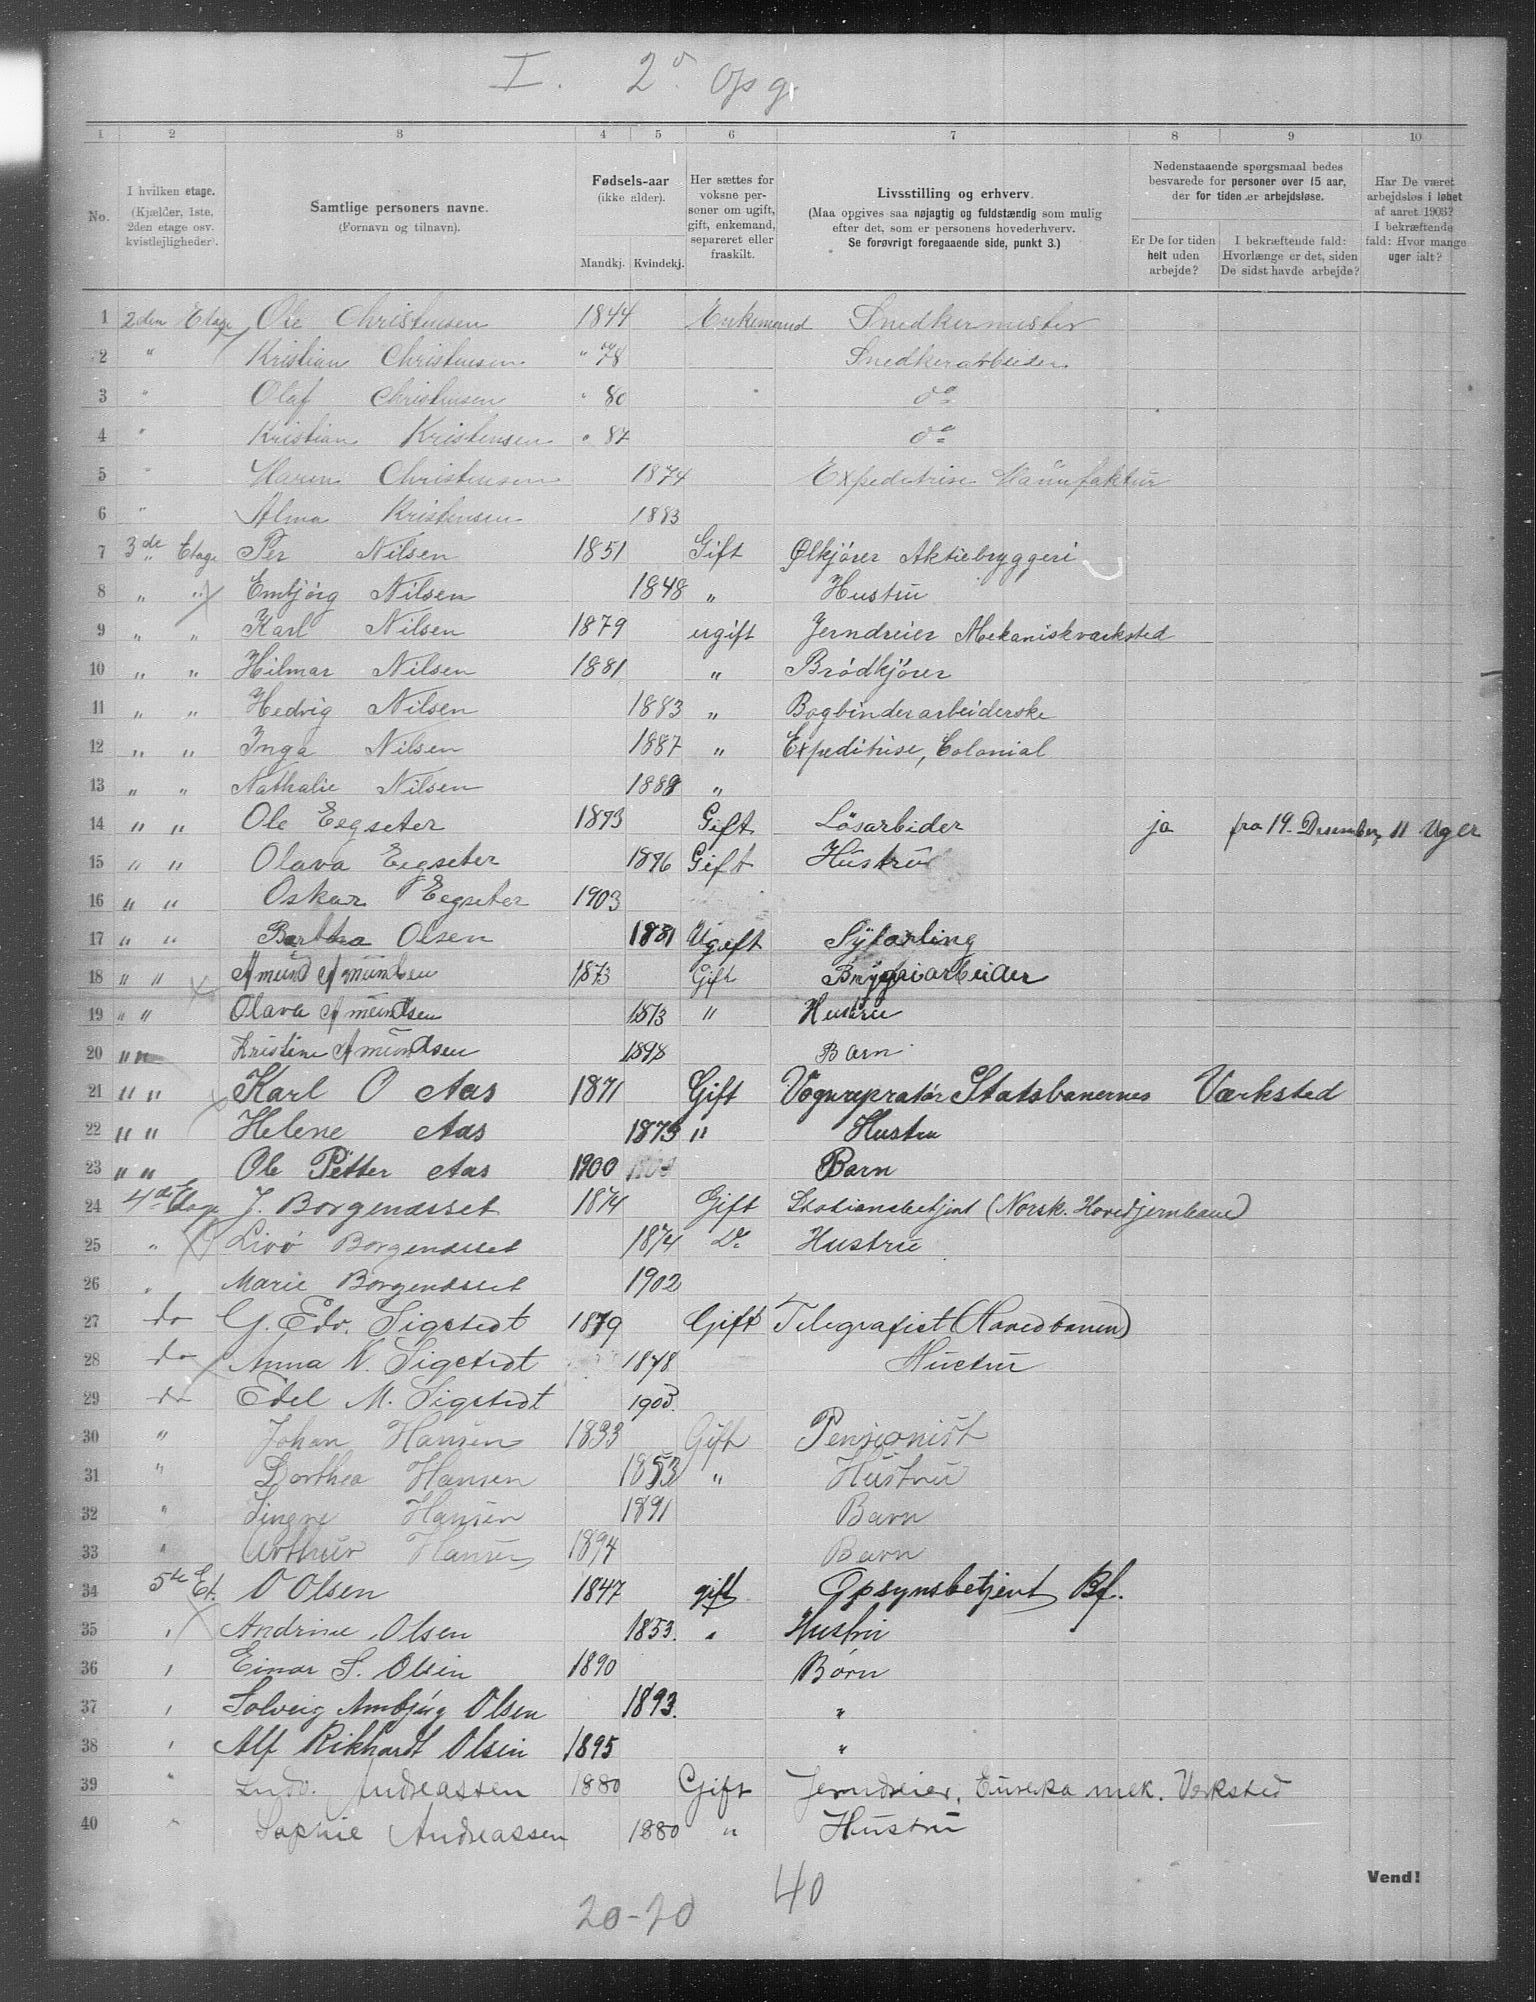 I. 2den Opg.
1 2 3 4 5 6 7 8 9 10
No.
I hvilken etage. (Kjælder, 1ste, 2den etage osv. kvistlejligheder).
Samtlige personers navne. (Fornavn og tilnavn).
Fødsels-aar (ikke alder). Mandkj. Kvindekj.
Her sættes for voksne personer om ugift, gift, enkemand, separeret eller fraskilt.
Livsstilling og erhverv. (Maa opgives saa nøjagtig og fuldstændig som mulig efter det, som er personens hovederhverv. Se forøvrigt foregaaende side, punkt 3.)
Nedenstaaende spørgsmaal bedes besvarede for personer over 15 aar, der for tiden er arbejdsløse.
Er De for tiden helt uden arbejde?
I bekræftende fald: Hvorlænge er det, siden De sidst havde arbejde?
Har De været arbejdsløs i løbet af aaret 1903? I bekræftende fald: Hvor mange uger ialt?
1 2den Etage Ole Christensen 1844 Enkemand Snedkermester
2 " Kristian Christensen " 78 Snedkerarbeider
3 " Olaf Christensen " 80 do
4 " Kristian Kristensen " 87 do
5 " Maren Christensen 1874 Expeditrise Manufaktur
6 " Alma Kristensen 1883
7 3de Etage Per Nilsen 1851 Gift Ølkjører Aktiebryggeri
8 " " Embjørg Nilsen 1848 " Hustru
9 " " Karl Nilsen 1879 ugift Jerndreier Mekaniskværksted
10 " " Hilmar Nilsen 1881 " Brødkjører
11 " " Hedvig Nilsen 1883 " Bogbinderarbeiderske
12 " " Inga Nilsen 1887 " Expeditrise, Colonial
13 " " Nathalie Nilsen 1888 "
14 " " Ole Eegseter 1873 Gift Løsarbider ja fra 19. Desember 11 Uger
15 " " Olava Eegseter 1876 Gift Hustru
16 " " Oskar Eegseter 1903
17 " " Bertha Olsen 1881 Ugift Syfarling
18 " " Amund Amundsen 1873 Gift Bryggriarbeider
19 " " Olava Amundsen 1873 " Hustru
20 " " Kristine Amundsen 1898 Barn
21 " " Karl O Aas 1871 Gift Vognrepratør Statsbanernes Værksted
22 " " Helene Aas 1875 " Hustru
23 " " Ole Petter Aas 1900 Barn
24 4de Etage J. Borgenasset 1874 Gift Stasionsbetjent (Norsk. Hovedjernbane)
25 " Livø Borgenasset 1874 Do Hustru
26 " Marie Borgenasset 1902
27 do G. Edv. Sigstedt 1879 Gift Telegrafist (Hovedbanen)
28 do Anna N. Sigstedt 1878 Hustru
29 do Edel M. Sigstedt 1903.
30 " Johan Hansen 1833 Gift Pensionist
31 " Dorthea Hansen 1853 " Hustru
32 " Singne Hansen 1891 Barn
33 " Arthur Hansen 1894 Barn
34 5te Et. O Olsen 1847 gift Opsynsbetjent Bf.
35 " Andrine Olsen 1853. " Hustru
36 " Einar S. Olsen 1890 Børn
37 " Solveig Ambjørg Olsen 1893. "
38 " Alf Rikhardt Olsen 1895 "
39 " Ludv. Andreassen 1880 Gift Jerndreier, Eureka mek. Verksted
40 " Sophie Andreassen 1880 " Hustru
Vend!
40
20-20